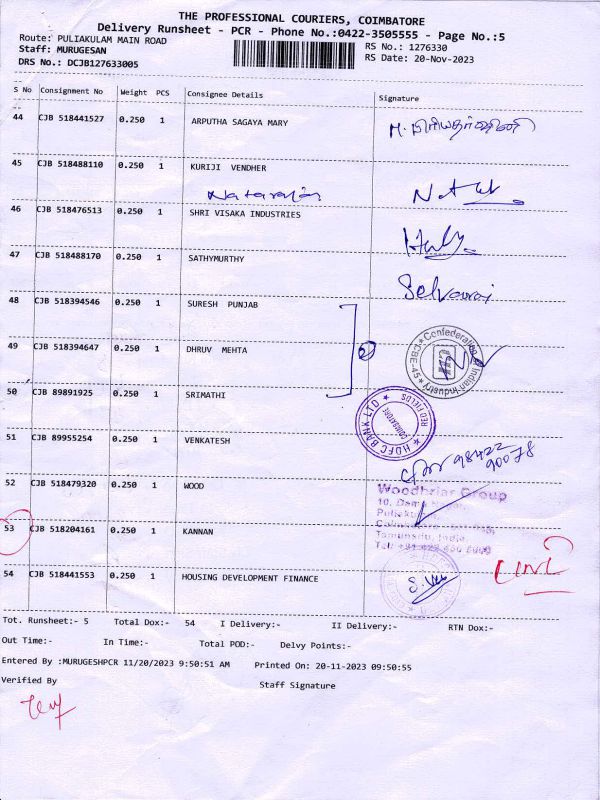 THE PROFESSIONAL COURIERS, COIMBATORE
Delivery Runsheet - PCR - Phone No.:0422-3505555 - Page No.:5
Route: PULIAKULAM MAIN ROAD
RS No.: 1276330
Staff: MURUGESAN
RS Date: 20-Nov-2023
DRS No.: DCJB127633005
S No Consignment No Weight PCS Consignee Details Signature
44 CJB 518441527 0.250 1 ARPUTHA SAGAYA MARY
45 CJB 518488110 0.250 1 KURIJI VENDHER
Natarajan
46 CJB 518476513 0.250 1 SHRI VISAKA INDUSTRIES
47 CJB 518488170 0.250 1 SATHYMURTHY
Selvaraj
48 CJB 518394546 0.250 1 SURESH PUNJAB
49 CJB 518394647 0.250 1 DHRUV MEHTA
2
Confederation of Indian Industry
★ CBE-45 ★
50 CJB 89891925 0.250 1 SRIMATHI
★ HDFC BANK LTD ★ RED FIELDS
COIMBATORE
51 CJB 89955254 0.250 1 VENKATESH
98422
90078
52 CJB 518479320 0.250 1 WOOD
Woodbriar Group
53 CJB 518204161 0.250 1 KANNAN
Tamilnadu, India.
54 CJB 518441553 0.250 1 HOUSING DEVELOPMENT FINANCE
Tot. Runsheet:- 5 Total Dox:- 54 I Delivery:- II Delivery:- RTN Dox:-
Out Time:- In Time:- Total POD:- Delvy Points:-
Entered By :MURUGESHPCR 11/20/2023 9:50:51 AM Printed On: 20-11-2023 09:50:55
Verified By Staff Signature